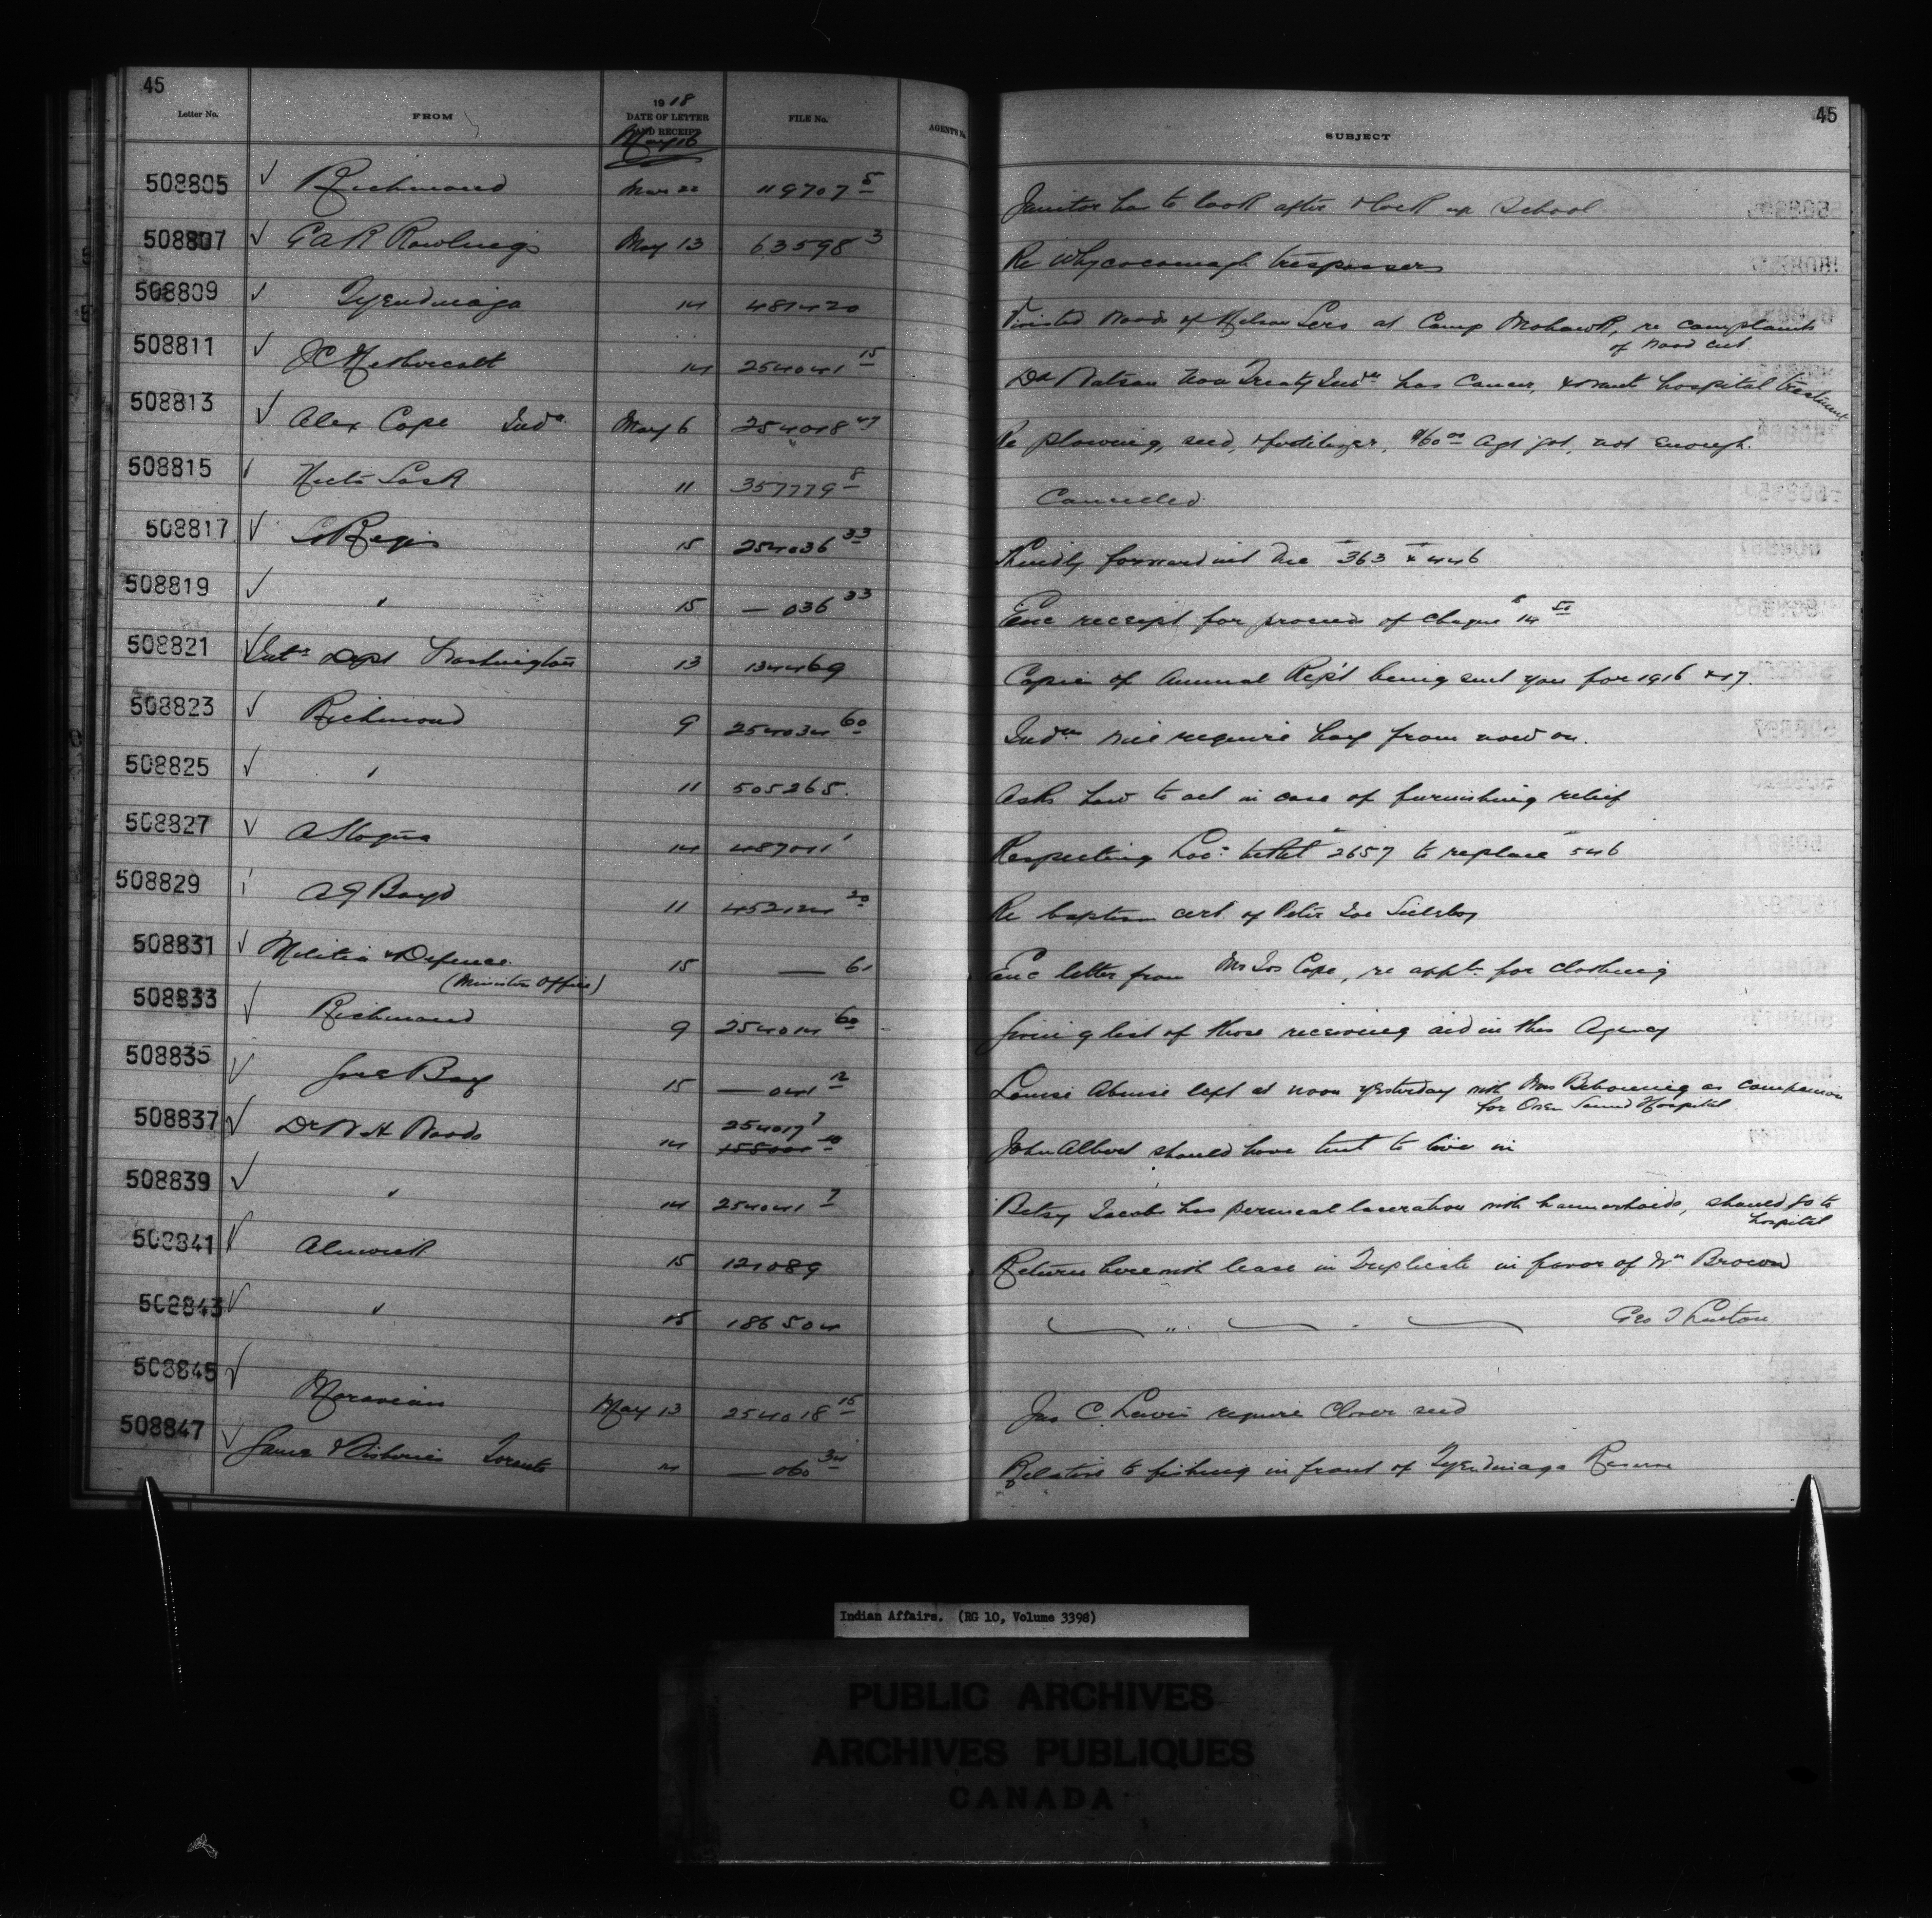 45
45
Letter No. FROM 1918 DATE OF LETTER AND RECEIPT FILE No. AGENT'S No. SUBJECT
May 16
508805 ✓ Richmond Mar 22 119707 5 Janitor has to look after & lock up School
508807 ✓ Rowlings May 13 63598 3 Re Whycocomagh trespassers
508809 ✓ Tyendinaga 14 481420 Visited Woods of Nelson Lero at Camp Mohawk, re complaints
of wood cut
508811 ✓ 14 254041 15 Dd Watson Non Treaty Indn has Cancer, & want hospital treatment
508813 ✓ Alex Cope Indn May 6 254018 47 Re plowing, seed, & fertilizer, $60 00 Agt got, not enough.
508815 11 357779 8 Cancelled
508817 ✓ St Regis 15 254036 33 Kindly forward int due 363 & 446
508819 ✓ " 15 — 036 33 Enc receipt for proceeds of Cheque $14 50
508821 ✓ Intr Dept Washington 13 134469 Copies of Annual Rep't being sent you for 1916 & 17.
508823 ✓ Richmond 9 254034 60 Indns will require hay from now on.
508825 ✓ " 11 505265. Asks how to act in case of furnishing relief
508827 ✓ A Logan 14 487011 1 Respecting Loc: ticket 2657 to replace 546
508829 A J Boyd 11 452124 20 Re baptism cert. of Peter Joe
508831 ✓ Militia & Defence 15 — 61 Enc letter from Mrs Jos Cope, re applt for clothing
(Ministers Office)
508833 ✓ Richmond 9 254014 60 Giving list of those receiving aid in this Agency
508835 ✓ Gore Bay 15 — 041 12 Louise left at noon yesterday with Mrs as companion
for Owen Sound Hospital
508837 ✓ Dr W H Woods 14 254017 7 John Albert should have tent to live in
508839 ✓ " 14 254041 7 Betsy Jacobs has perineal laceration with haemorrhoids, should go to
hospital
508841 ✓ Alnwick 15 121089 Return herewith lease in Duplicate in favor of Wm Brown
508843 ✓ " 15 186504 " Geo
508845 ✓ Moravian May 13 254018 15 Jas C. Lewis require Clover seed
508847 ✓ Game & Fisheries Toronto — 060 34 Relative to fishing in front of Tyendinaga Reserve
Indian Affairs. (RG 10, Volume 3398)
PUBLIC ARCHIVES
ARCHIVES PUBLIQUES
CANADA